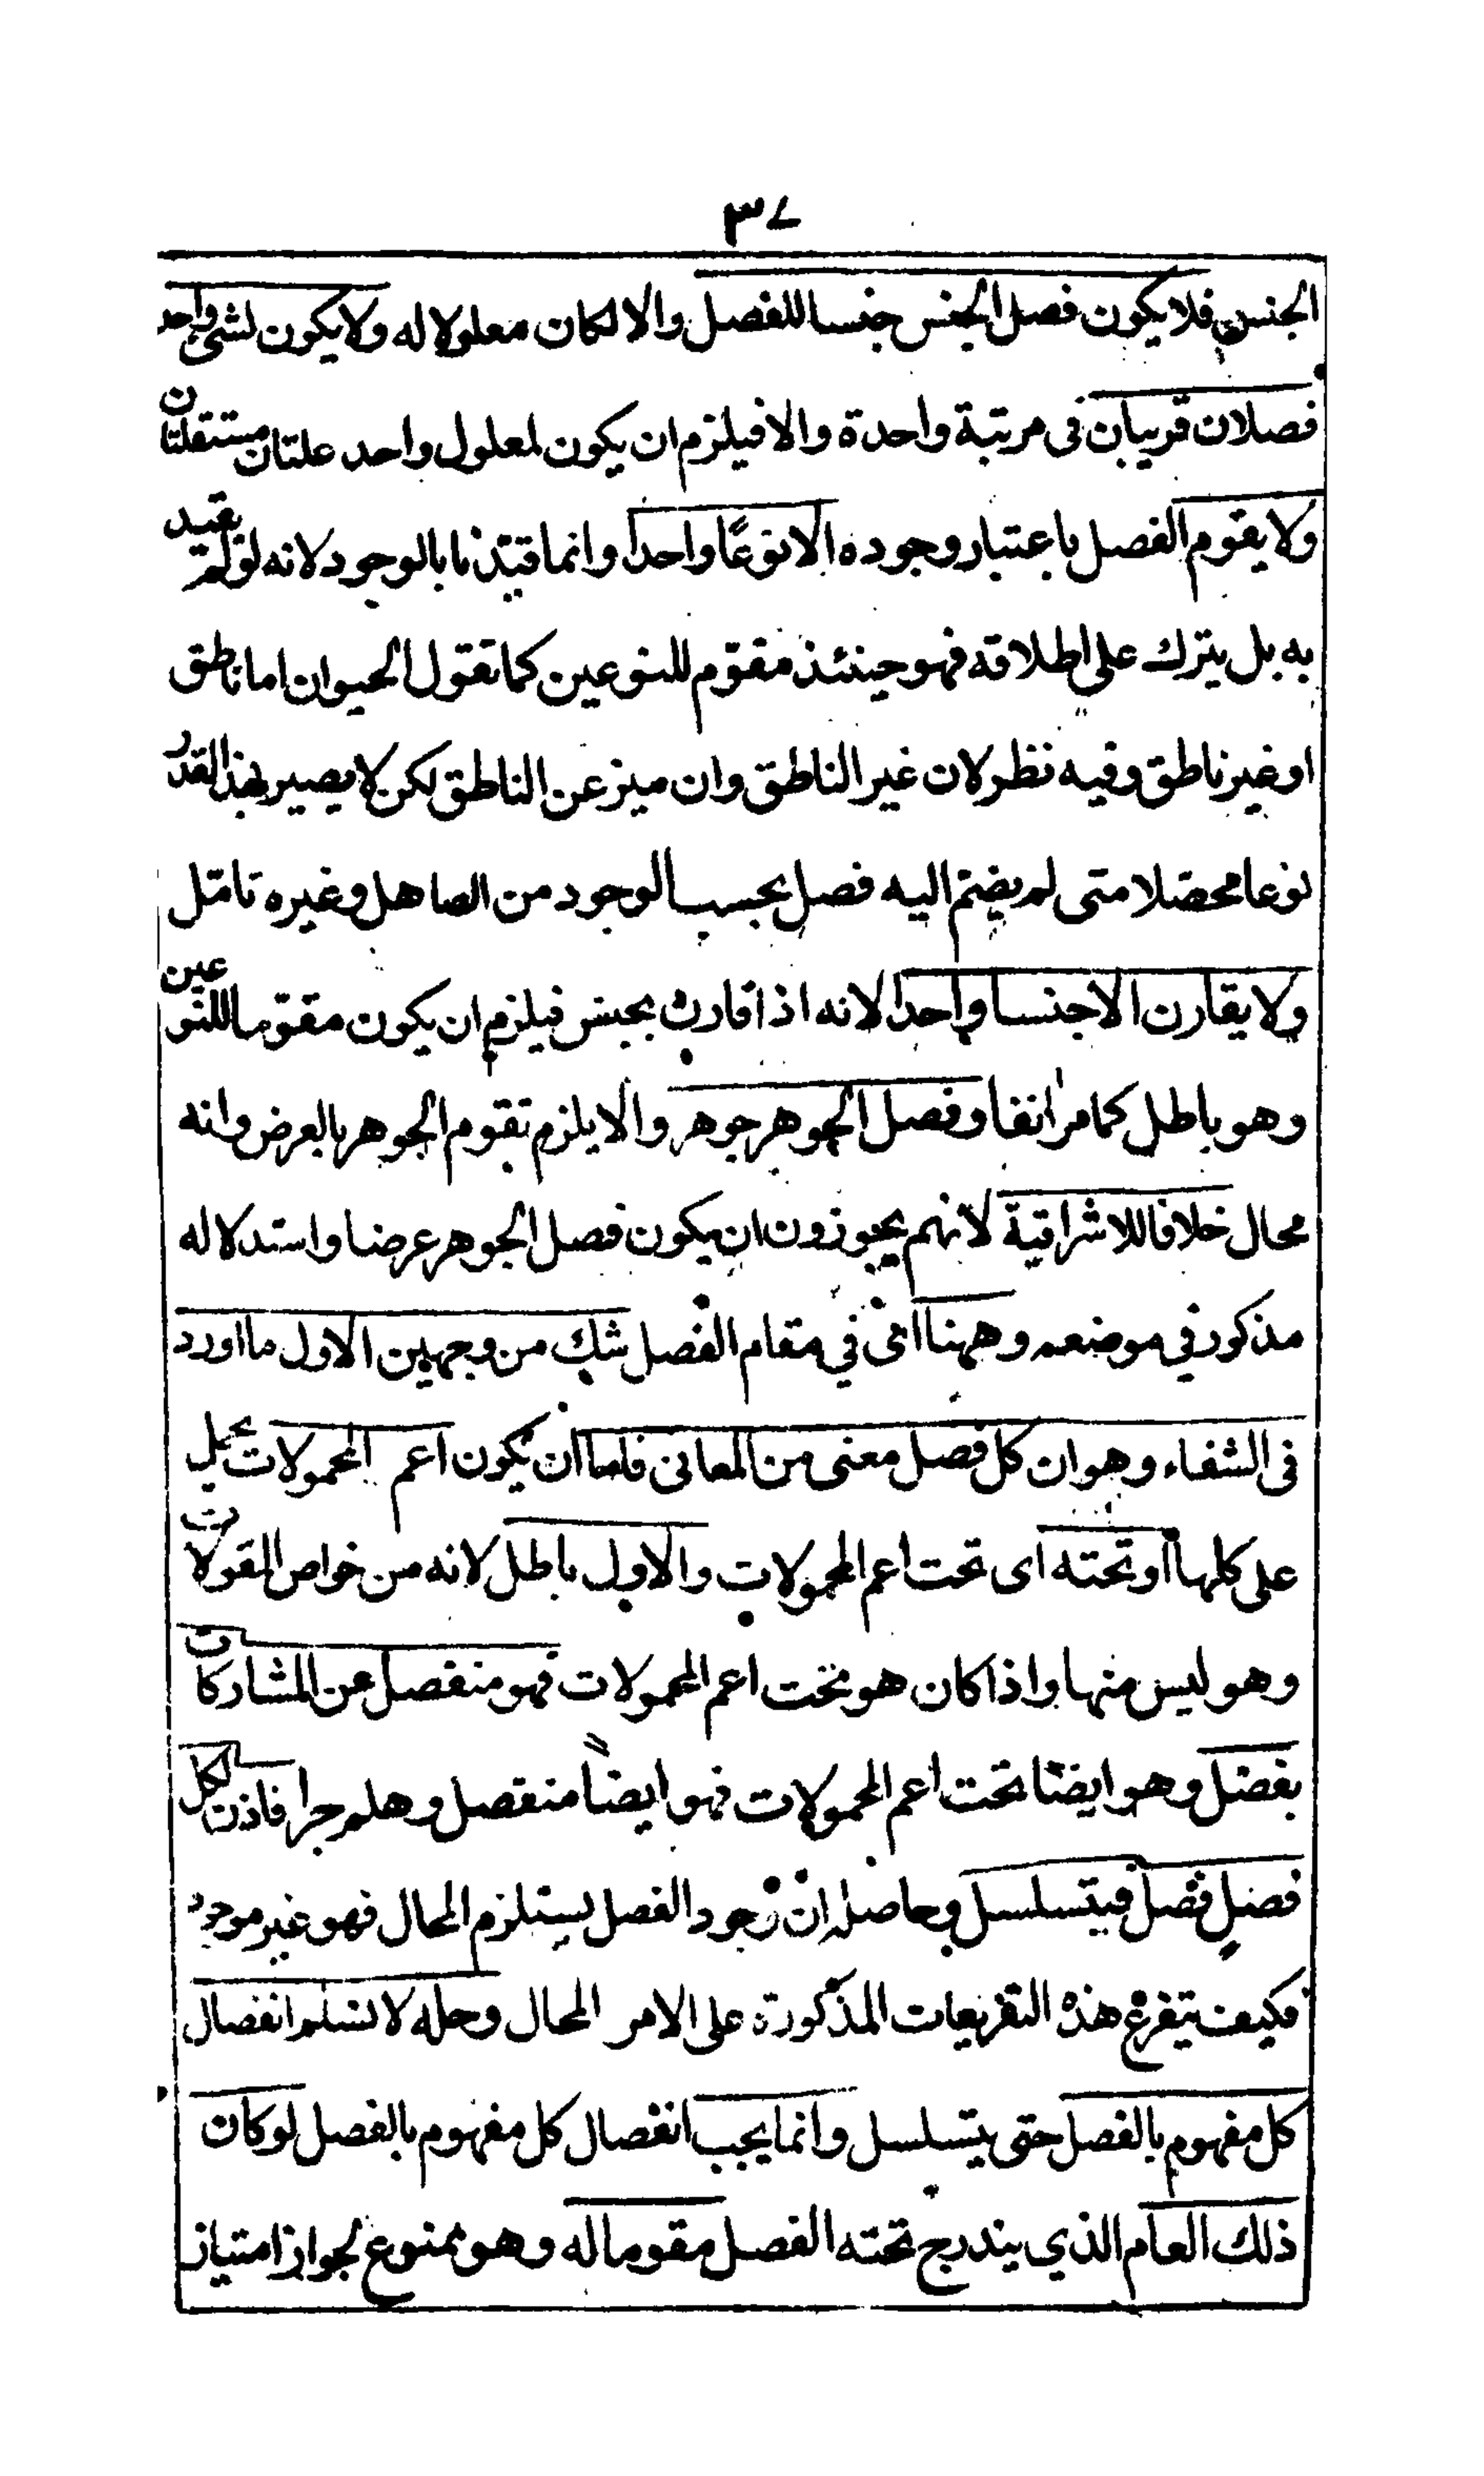 ٣٧
الجنس فلا يكون فصل الجنس جنسا للفصل والا لكان معلولا له ولا يكون لشئ واحد
فصلان قريبان فى مرتبة واحدة والا فيلزم ان يكون لمعلول واحد علتان مستقلتان
ولا يقوم الفصل باعتبار وجوده الا نوعًا واحدا وانما قيّدنا بالوجود لانه لو لم يقيد
به بل يترك على اطلاقه فهو حينئذ مقوّم للنوعين كما تقول الحيوان اما ناطق
او غير ناطق وفيه نظر لان غير الناطق وان ميز عن الناطق لكن لا يصير بهذا القدر
نوعا محصّلا متى لم يضمّ اليه فصل بحسب الوجود من الصاهل وغيره تامّل
ولا يقارن الا جنسا واحدا لانه اذا قارن بجنس فيلزم ان يكون مقوّما للنوعين
وهو باطل كما مر انفا وفصل الجوهر جوهر والا يلزم تقوم الجوهر بالعرض وانه
محال خلافا للاشراقية لانهم يجوزون ان يكون فصل الجوهر عرضا واستدلاله
مذكور في موضعه وههنا اى في مقام الفصل شك من وجهين الاول ما اورد
فى الشفاء وهو ان كل فصل معنى من المعانى فاما ان يكون اعم المحمولات يحمل
على كلها او تحته اى تحت اعم المحمولات والاول باطل لانه من خواص المقولات
وهو ليس منها واذا كان هو تحت اعم المحمولات فهو منفصل عن المشاركات
بفصل وهو ايضا تحت اعم المحمولات فهو ايضاً منفصل وهلم جرا فاذن لكل
فصلٍ فصل فيتسلسل وحاصله ان وجود الفصل يستلزم المحال فهو غير موجود
فكيف يتفرع هذه التفريعات المذكورة على الامر المحال وحله لا نسلم انفصال
كل مفهوم بالفصل حتى يتسلسل وانما يجب انفصال كل مفهوم بالفصل لو كان
ذلك العام الذي يندرج تحته الفصل مقوما له وهو ممنوع لجواز امتياز